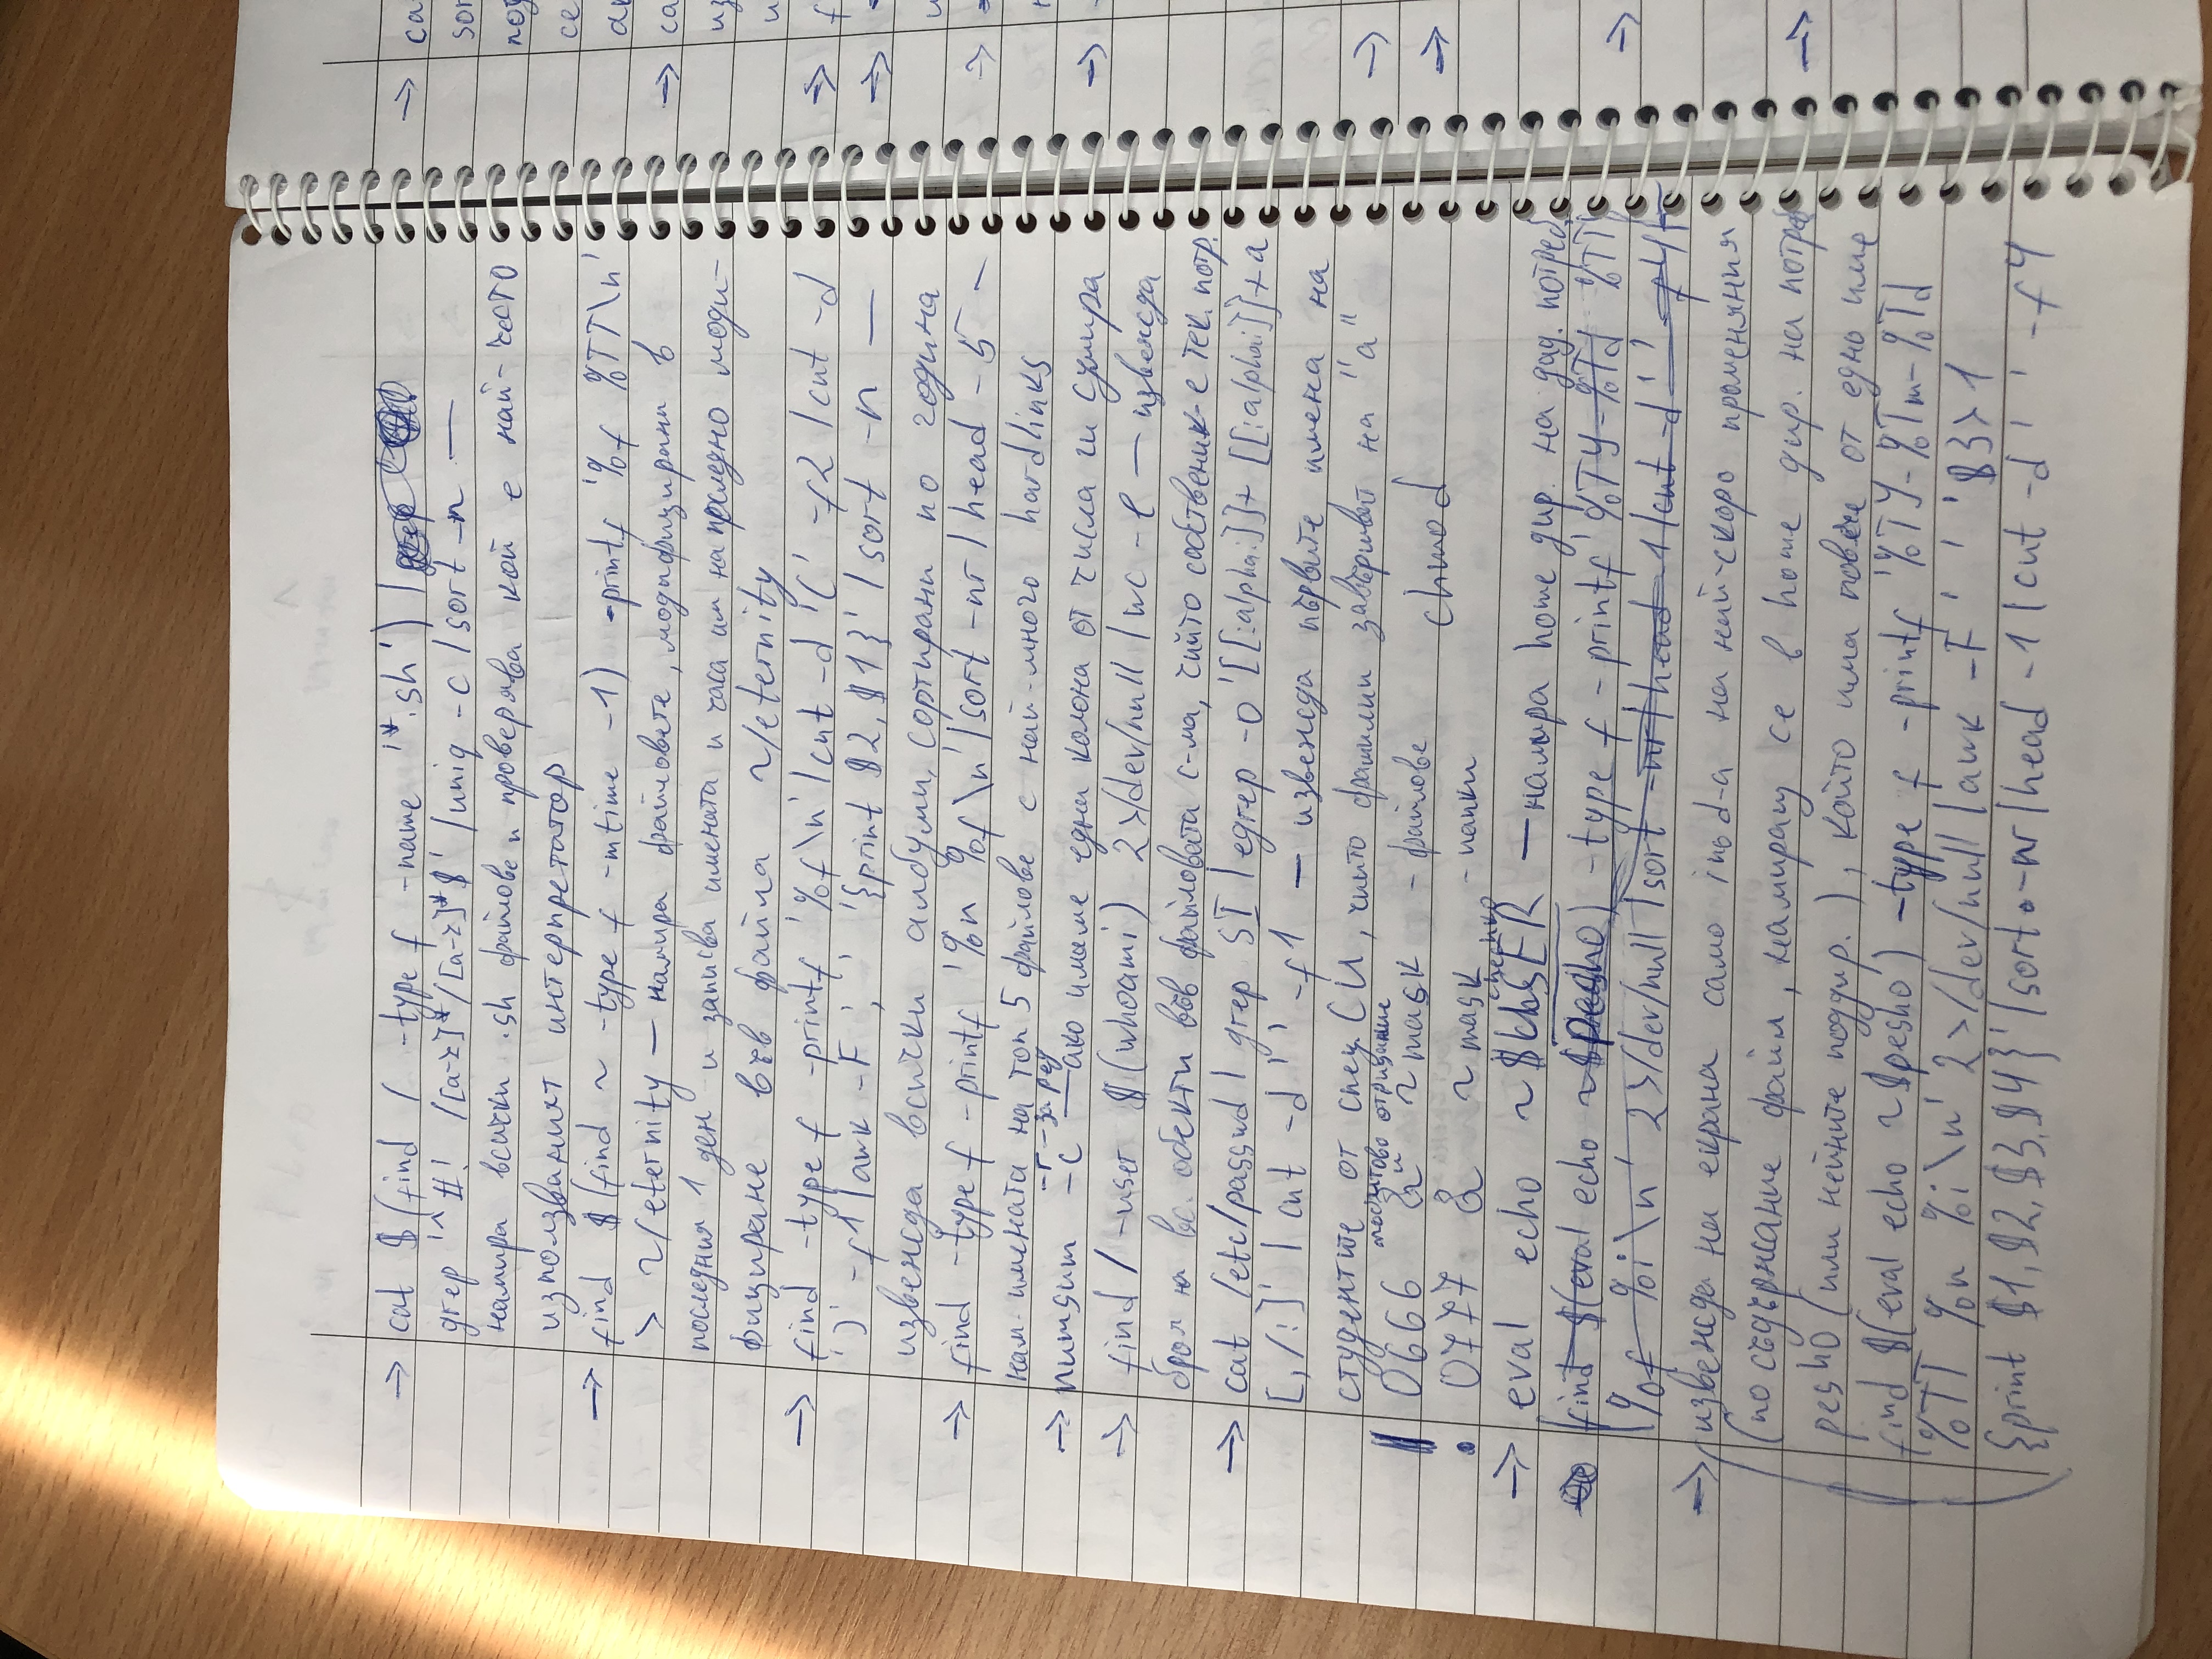 → cat $(find / -type f -name '*.sh') |
grep '^#! /[a-z]*/[a-z]*$' | uniq -c | sort -n —
намира всички .sh файлове и проверява кой е най-често
използваният интерпретатор
→ find $(find ~ -type f -mtime -1) -printf '%f %TT\n'
> ~/eternity — намира файловете, модифицирани в
последния 1 ден и записва имената и часа им на последно моди-
фициране във файла ~/eternity
→ find -type f -printf '%f\n' | cut -d '(' -f2 | cut -d
')' -f1 | awk -F ',' '{print $2, $1}' | sort -n —
извежда всички албуми, сортирани по година
→ find -type f -printf '%n %f\n' | sort -nr | head -5 -
нам. имената на топ 5 файлове с най-много hardlinks
-r - за ред
→ numsum -c — ако имаме една колона от числа ги сумира
→ find / -user $(whoami) 2>/dev/null | wc -l — извежда
броя на вс. обекти във файловата с-ма, чийто собственик е тек. потр.
→ cat /etc/passwd | grep SI | egrep -o '[[:alpha:]]+ [[:alpha:]]+a
[,/:]' | cut -d ' ' -f1 — извежда първите имена на
студентите от спец. СИ, чиито фамилии завършват на "а"
побитово отрицание
! 0666 & ~mask - файлове chmod
0777 & ~mask - папки
→ eval echo ~$USER — намира home дир. на дад. потреб.
find $(eval echo ~$pesho) -type f -printf '%TY-%Td %TT
%f %i\n' 2>/dev/null | sort -nr | head -1 | cut -d ' ' -f4
→ извежда на екрана само inod-a на най-скоро променяния
(по съдържание файл, намиращ се в home дир. на потреб
pesho (или нейните поддир.), който има повече от едно име
find $(eval echo ~$pesho) -type f -printf '%TY-%Tm-%Td
%TT %n %i\n' 2>/dev/null | awk -F ' ' '$3>1
{print $1,$2,$3,$4}' | sort -nr | head -1 | cut -d ' ' -f4
→ ca
sor
се
→ ca
из
и
→ f
→
→
→
→
→
→
→